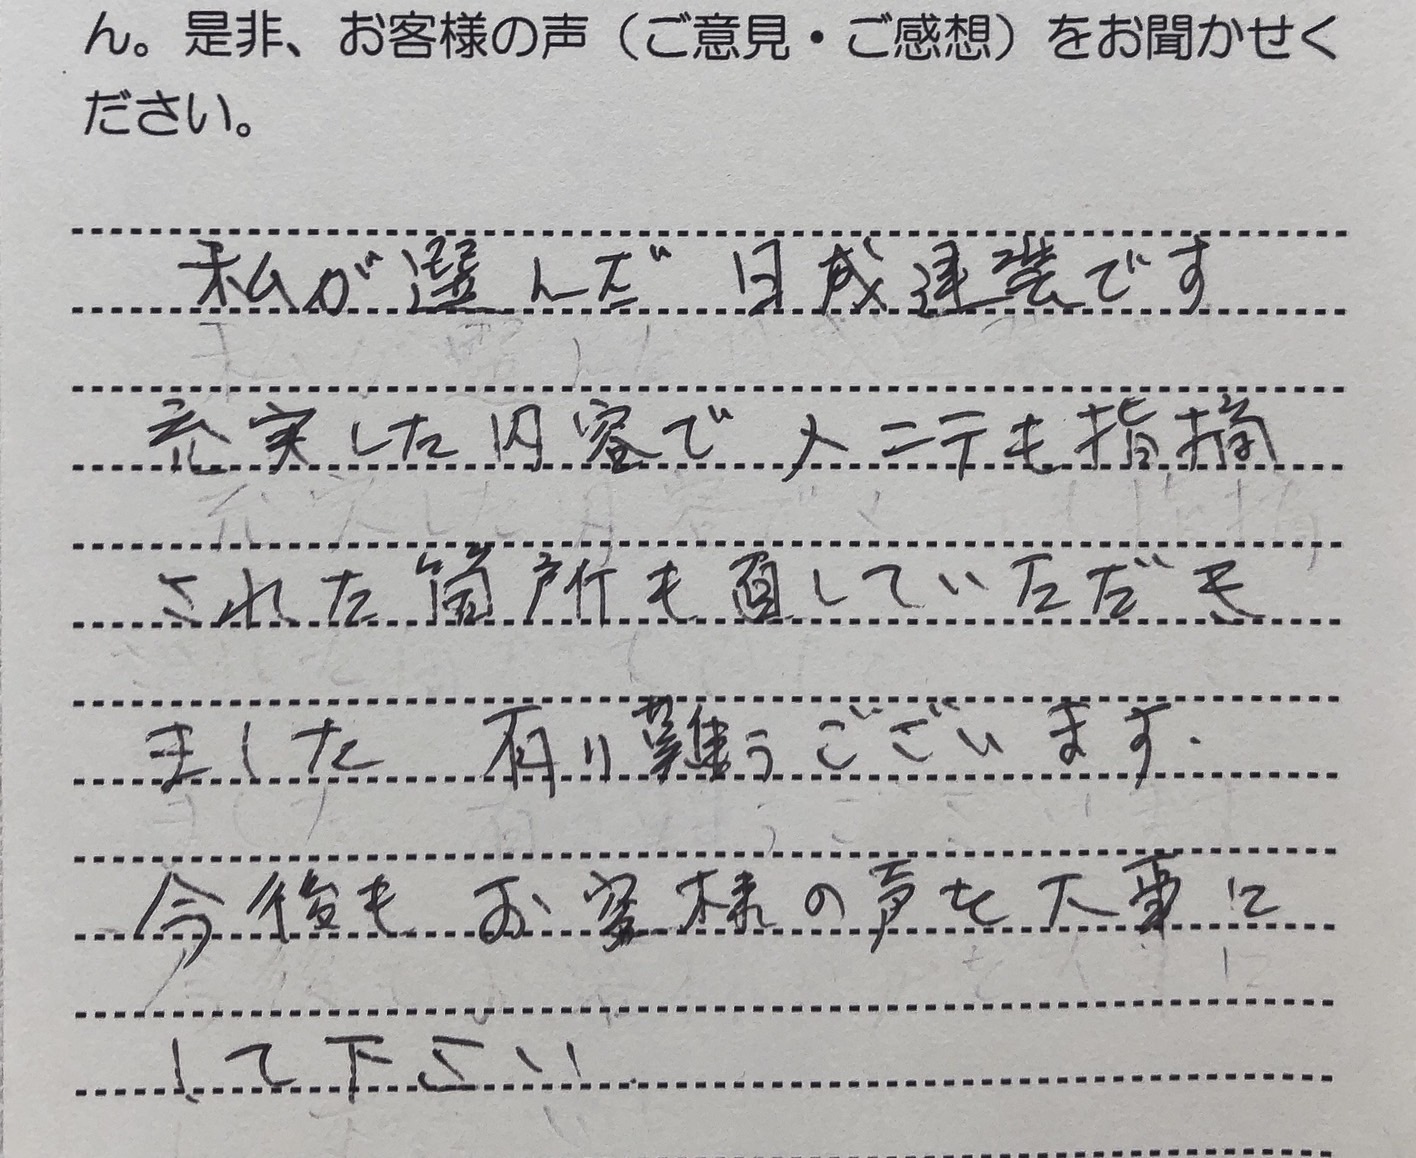 ん。是非、お客様の声（ご意見・ご感想）をお聞かせく
ださい。
私が選んだ 日成建装です
充実した内容で メンテも指摘
された箇所も直していただき
ました 有り難うございます.
今後も お客様の声を大事に
して下さい.